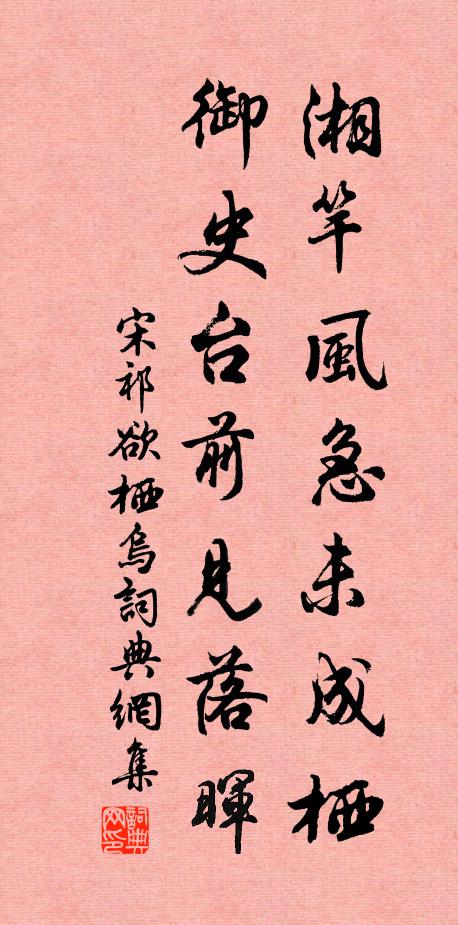 湘竿風急未成栖
御史台前見落暉
宋祁欲栖烏詞典網集
詞典网印